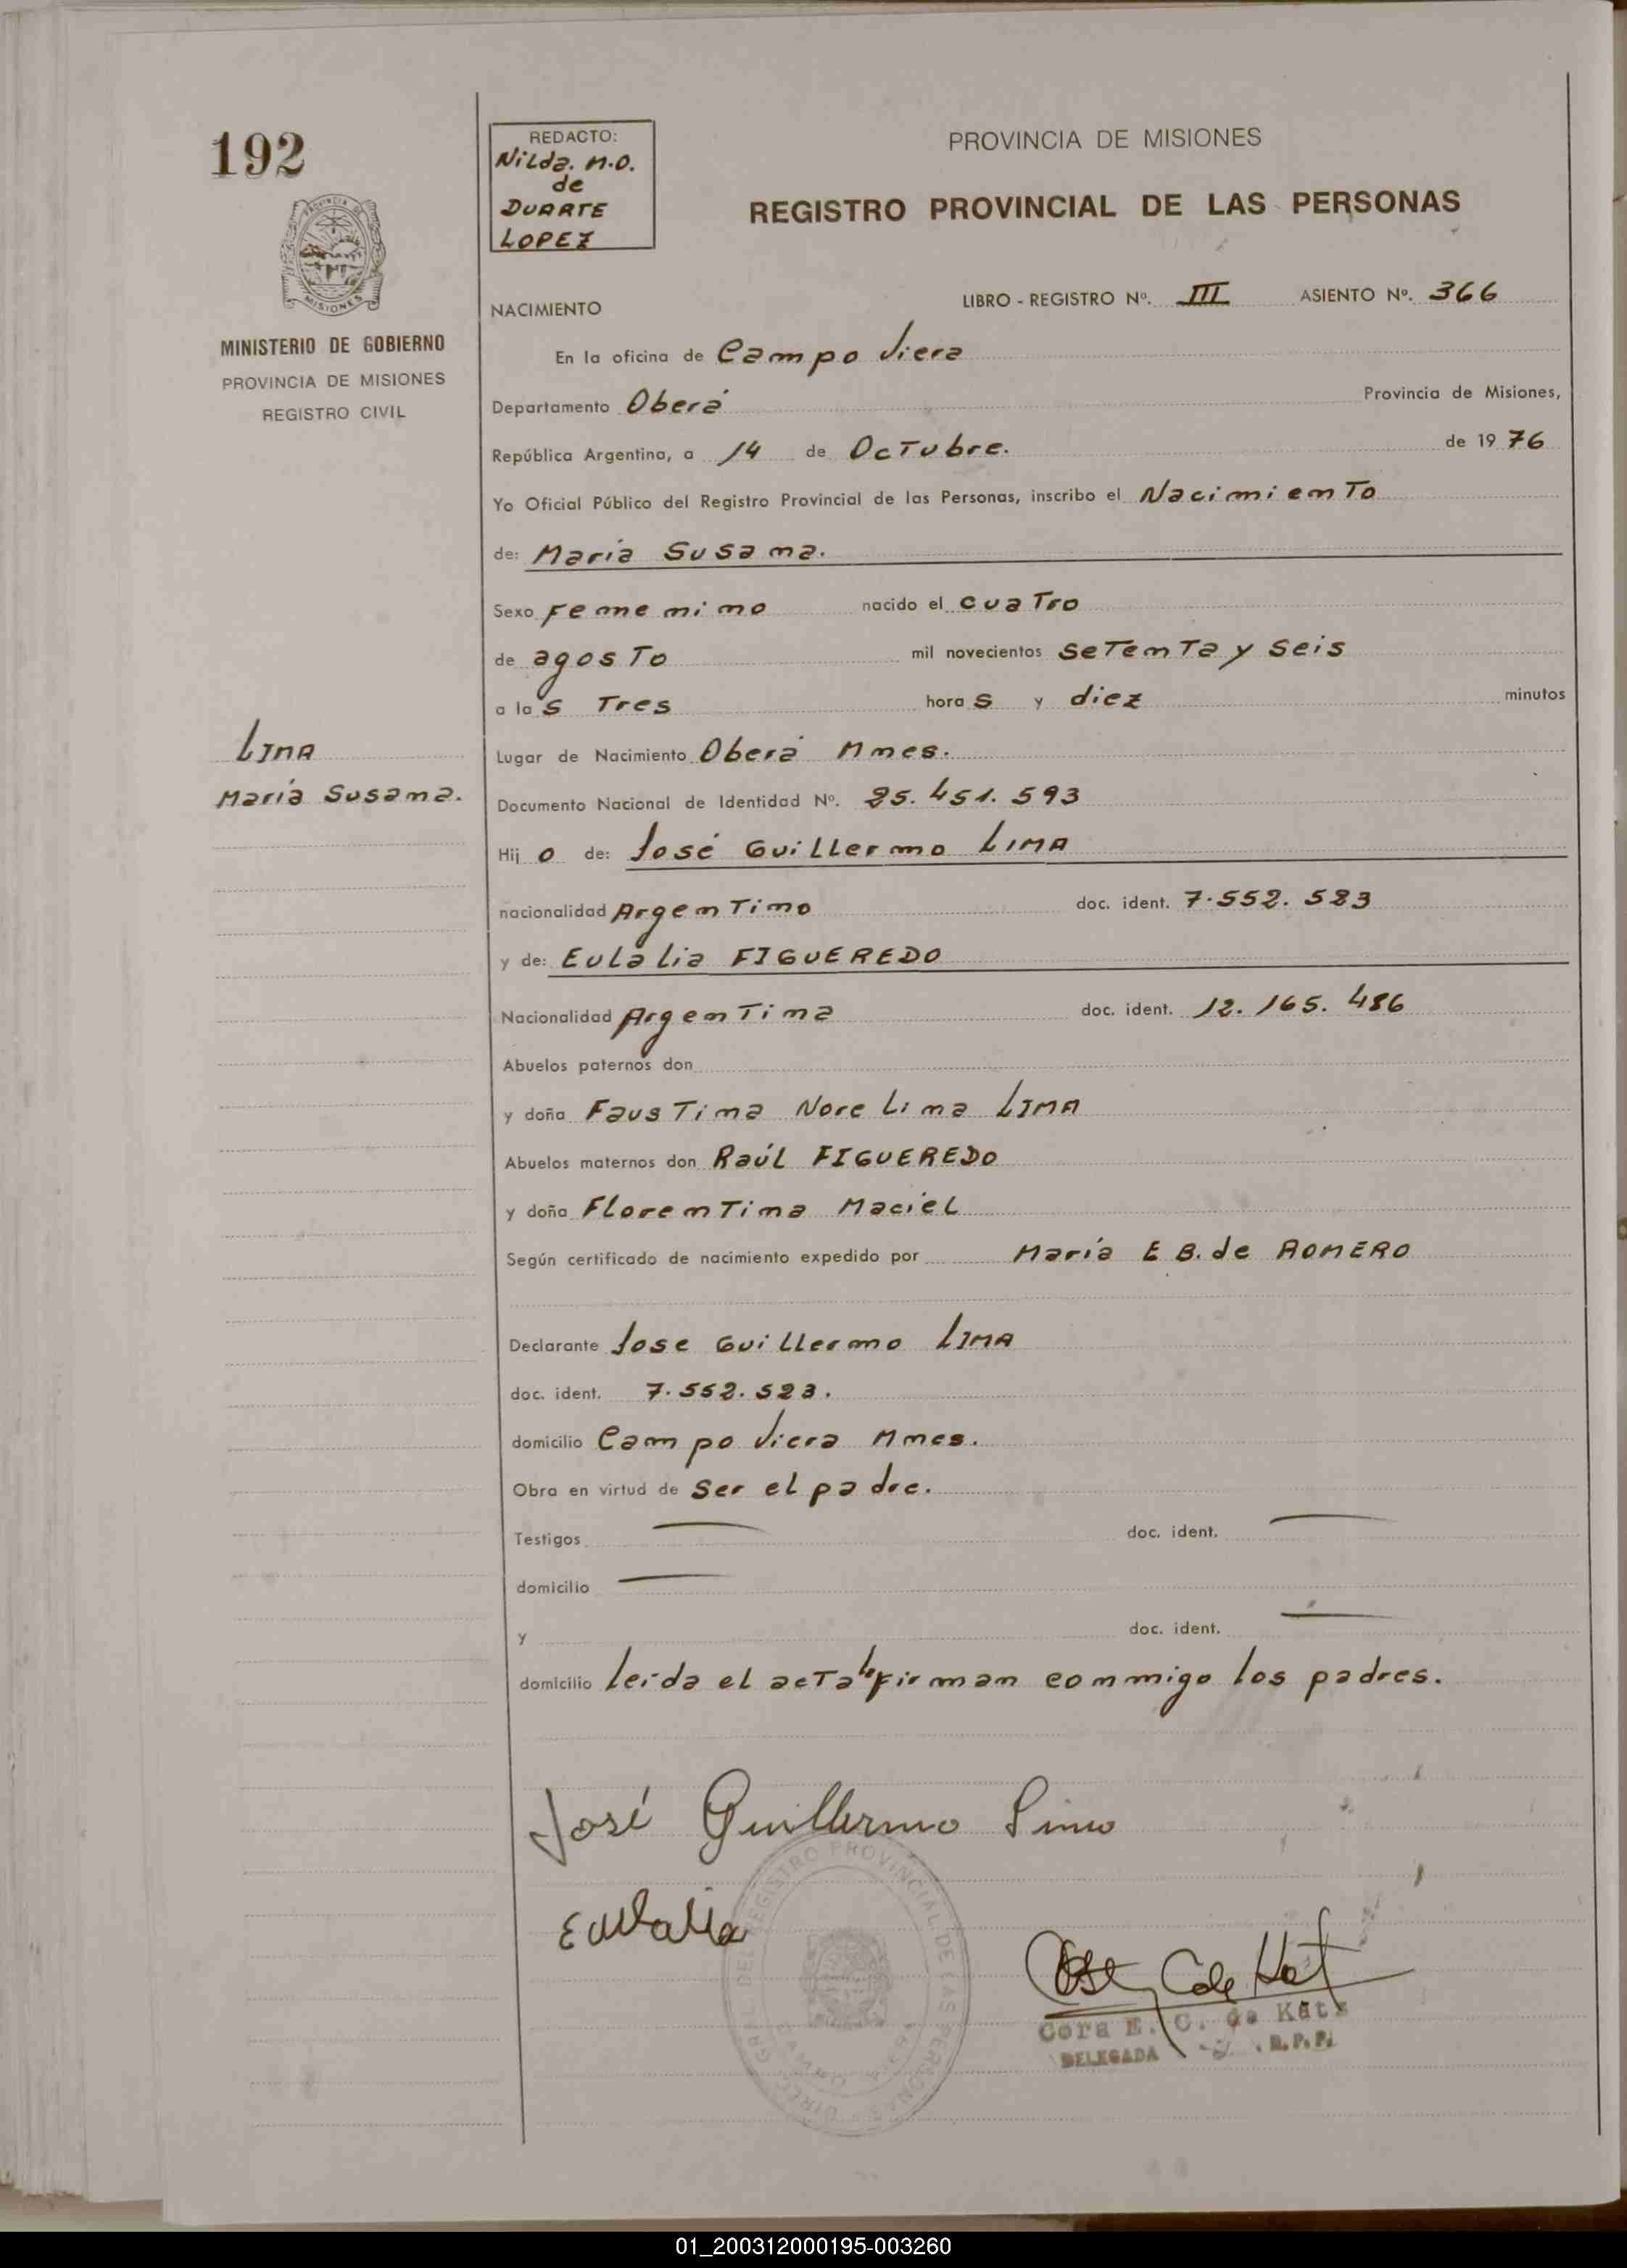 192
REDACTO:
Nilda. M.O.
de
DUARTE
LOPEZ
PROVINCIA DE MISIONES
REGISTRO PROVINCIAL DE LAS PERSONAS
MISIONES
MINISTERIO DE GOBIERNO
PROVINCIA DE MISIONES
REGISTRO CIVIL
NACIMIENTO LIBRO - REGISTRO Nº. III ASIENTO Nº. 366
En la oficina de Campo Viera
Departamento Oberá Provincia de Misiones,
República Argentina, a 14 de Octubre. de 1976
Yo Oficial Público del Registro Provincial de las Personas, inscribo el Nacimiento
de: María Susana.
Sexo Femenino nacido el cuatro
de agosto mil novecientos setenta y seis
a las Tres horas y diez minutos
Lugar de Nacimiento Oberá Mnes.
Documento Nacional de Identidad Nº. 25.451.593
Hijo de: José Guillermo LIMA
nacionalidad Argentino doc. ident. 7.552.523
y de: Eulalia FIGUEREDO
Nacionalidad Argentina doc. ident. 12.165.486
Abuelos paternos don
y doña Faustina Norelina LIMA
Abuelos maternos don Raúl FIGUEREDO
y doña Florentina Maciel
Según certificado de nacimiento expedido por María E B. de ROMERO
Declarante Jose Guillermo LIMA
doc. ident. 7.552.523.
domicilio Campo Viera Mnes.
Obra en virtud de ser el padre.
Testigos doc. ident.
domicilio
y doc. ident.
domicilio leida el acta la firman conmigo los padres.
LIMA
María Susana.
José Guillermo Lima
Eulalia
DIREC. GRAL. DEL REGISTRO PROVINCIAL DE LAS PERSONAS
CAMPO VIERA
Cora E. C. de Katz
DELEGADA R.P.P.
01_200312000195-003260